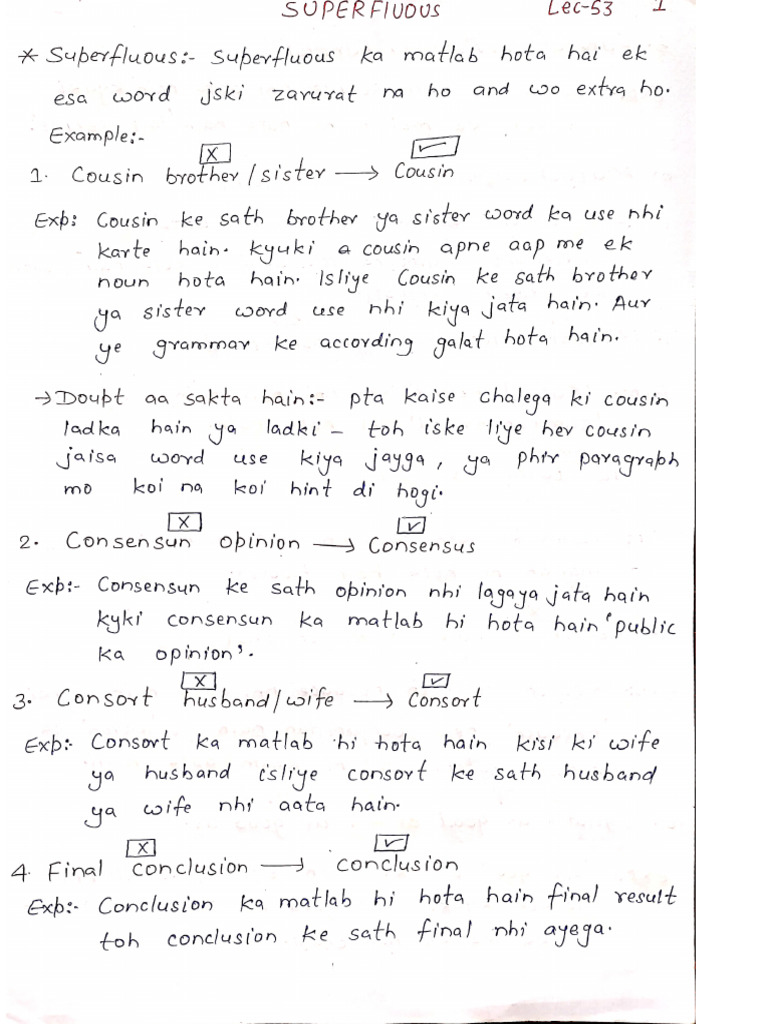 SUPERFlUOUS Lec-53 1
* Superfluous:- Superfluous ka matlab hota hai ek
esa word jski zarurat na ho and wo extra ho.
Example:-
X ✓
1. Cousin brother/sister → Cousin
Exp: Cousin ke sath brother ya sister word ka use nhi
karte hain. kyuki a cousin apne aap me ek
noun hota hain. Isliye Cousin ke sath brother
ya sister word use nhi kiya jata hain. Aur
ye grammar ke according galat hota hain.
→ Doupt aa sakta hain:- pta kaise chalega ki cousin
ladka hain ya ladki - toh iske liye her cousin
jaisa word use kiya jayga, ya phir paragraph
mo koi na koi hint di hogi.
X ✓
2. Consensun opinion → Consensus
Exp:- Consensun ke sath opinion nhi lagaya jata hain
kyki consensun ka matlab hi hota hain 'public
ka opinion'.
X ✓
3. Consort husband/wife → Consort
Exp:- Consort ka matlab hi hota hain kisi ki wife
ya husband isliye consort ke sath husband
ya wife nhi aata hain.
X ✓
4. Final conclusion → conclusion
Exp:- Conclusion ka matlab hi hota hain final result
toh conclusion ke sath final nhi ayega.